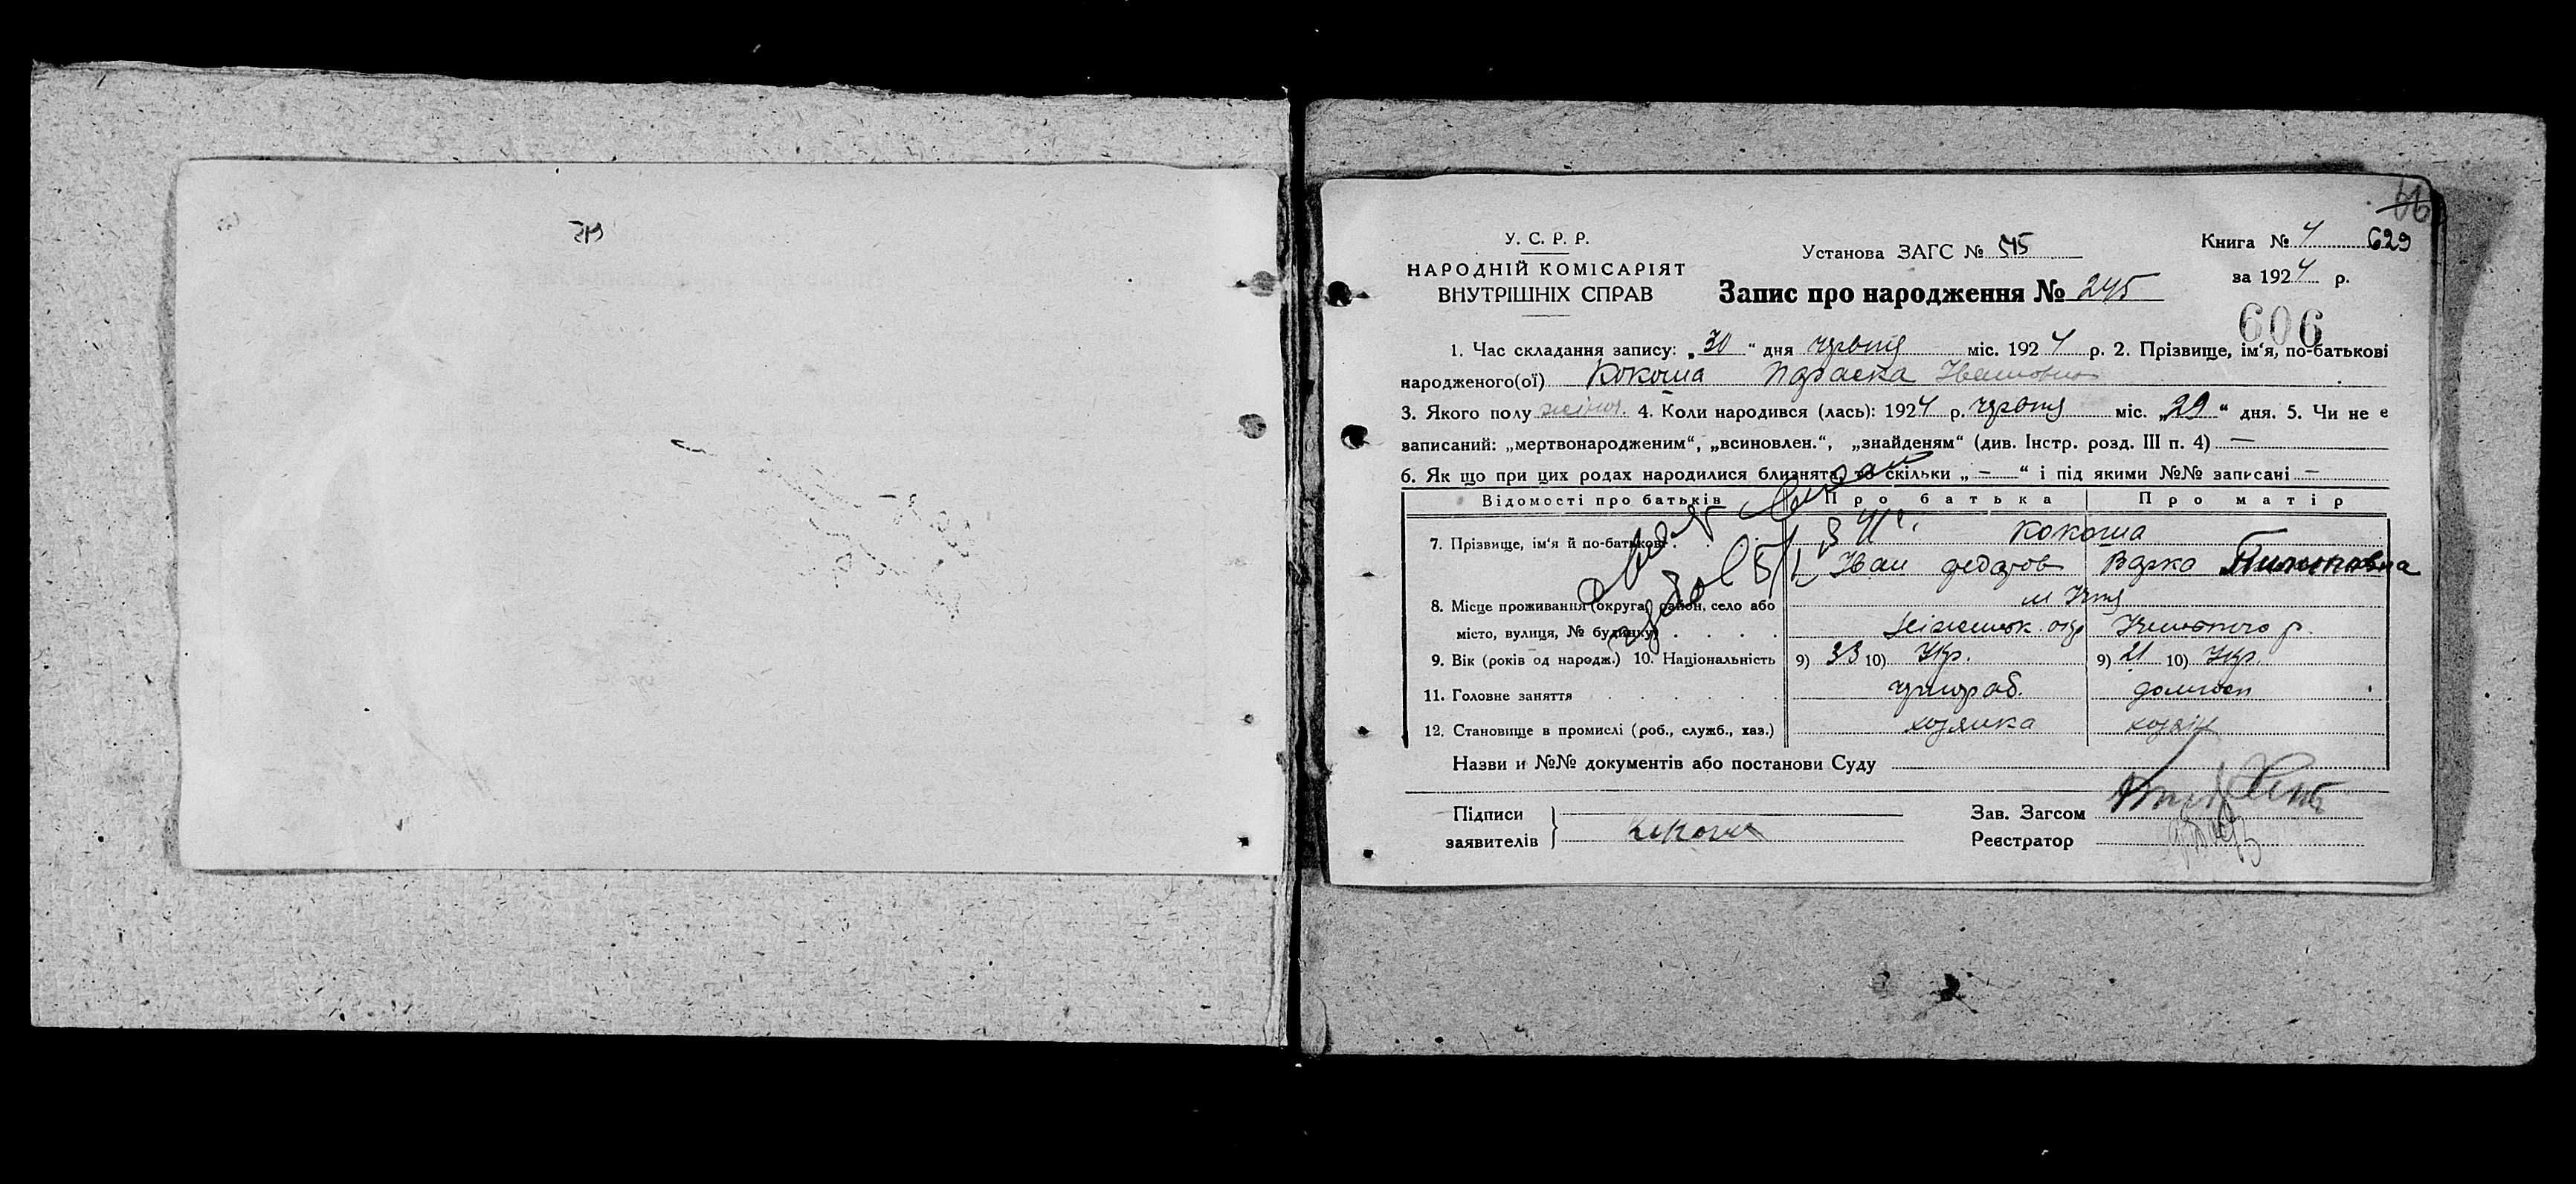 66
У. С. Р. Р.
НАРОДНІЙ КОМІСАРІЯТ
ВНУТРІШНІХ СПРАВ
Установа ЗАГС №
Книга № 4 629
за 1924 р.
Запис про народження № 245
606
1. Час складання запису: „30“ дня червня міс. 1924 р. 2. Прізвище, ім'я, по-батькові
народженого(ої) Кокоша Параска Івановна
3. Якого полу жіноч. 4. Коли народився (лась): 1924 р. червня міс. „29“ дня. 5. Чи не є
записаний: „мертвонародженим“, „всиновлен.“, „знайденям“ (див. Інстр. розд. III п. 4) —
6. Як що при цих родах народилися близнята, то скільки „—“ і під якими №№ записані —
Відомості про батьків Про батька Про матір
7. Прізвище, ім'я й по-батькові Кокоша
Іван Федоров Варка
8. Місце проживання (округа, район, село або
місто, вулиця, № будинку)
9. Вік (років од народж.) 10. Національність 9) 33 10) Укр. 9) 21 10) Укр.
11. Головне заняття
12. Становище в промислі (роб., служб., хаз.) хозяика хозяін
Назви и №№ документів або постанови Суду
Підписи
заявителів Кокоша
Зав. Загсом
Реєстратор